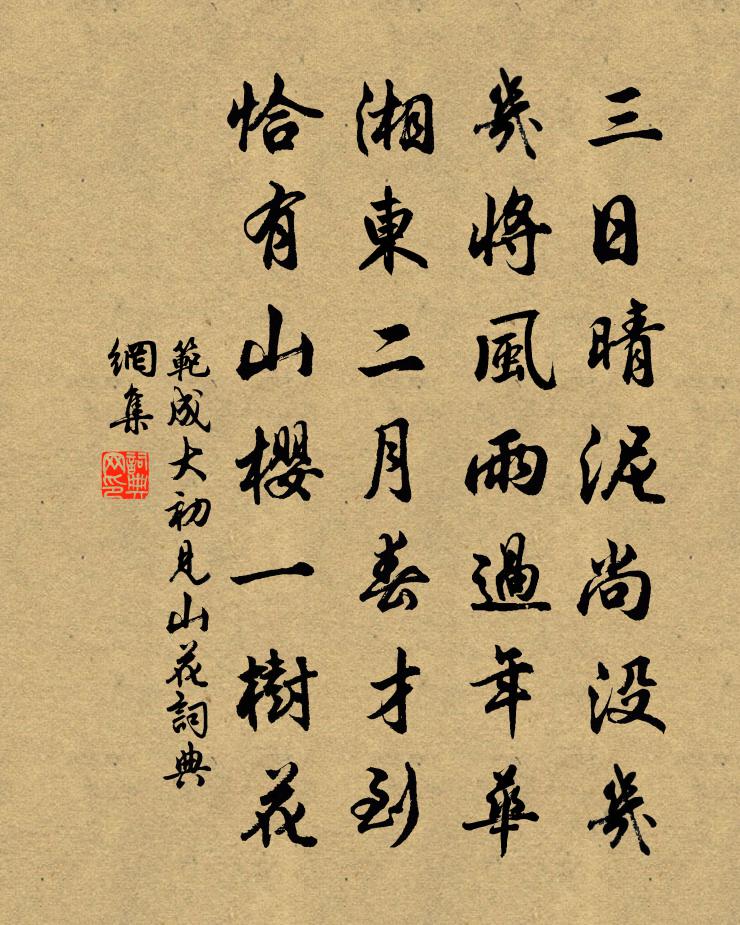 三日晴泥尚没幾
幾將風雨過年華
湘東二月春才到
恰有山櫻一樹花
範成大初見山花詞典
網集
詞典
网印